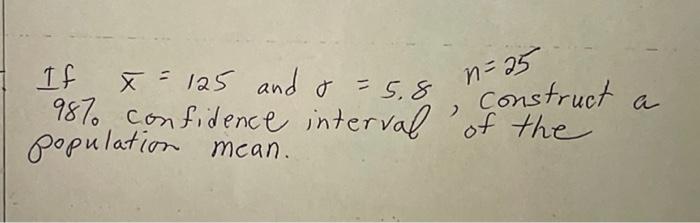 If x̄ = 125 and σ = 5.8 n=25
98% confidence interval, construct a
population mean. of the